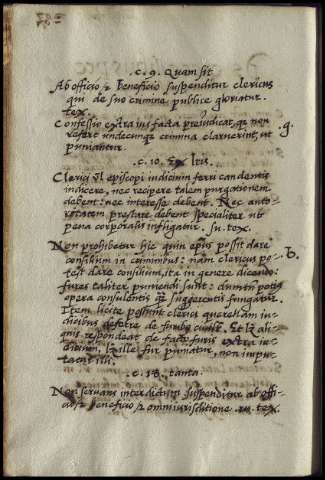 .c. 9. Quam sit
Ab officio et Beneficio suspenditur clericus
qui de suo crimine publice gloriatur.
tex.
Confessio extra ius facta preiudicat, que non
refert undecunque crimina claruerint, ut
puniantur.
.g.
.c. 10. Ex l̃tis.
Clerici vl episcopi iudicium ferri candentis
indicere, nec recipere talem purgationem
debent: nec interesse debent. Nec auto-
ritatem prestare debent specialiter ubi
pena corporalis infligatur. su. tex.
Non prohibetur hic quin epũs possit dare
consilium in criminibus: nam clericus po-
test dare consilium, ita in genere dicendo:
fures taliter puniendi sunt: dummodo potius
opera consulentis que suggerentis fungatur.
.b.
Item licite possunt clerici querelam iu-
dicibus deferre de furibus
respondeat de facto furis extra iu-
dicium, et ille fur puniatur, non impu-
tatur illi.
.c. 18. tanta.
Non servans interdictum suspenditur ab offi-
cio, et beneficio et omni iurisditione. su. tex.